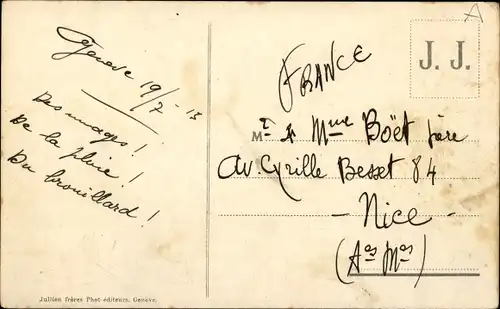 Genève 19/7-13
Des nuages !
De la pluie !
Du brouillard !
Jullien frères Phot-éditeurs, Genève.
A
J. J.
FRANCE
Mr & Mme Boët père
Av. Cyrille Besset 84
- Nice -
(Aes Mes)